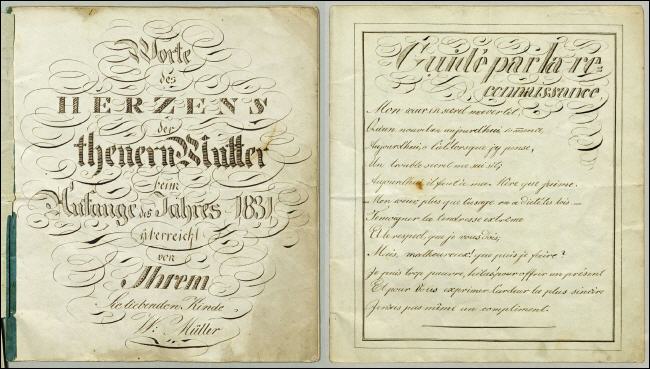 Worte
des
HERZENS
der
theuern Mutter
beim
Anfange des Jahres 1831
überreicht
von
Ihrem
Sie liebenden Kinde
W: Müller
Guidé par la re=
connaissance
Mon cœur in
aujourdhui
Aujourdhui, lorsque j'y pense,
Un trouble secret me saisit;
Aujourdhui il faut à ma Mère que j'exprime
Mon cœur, plus que l'usage en a dicté les lois —
Témoigner la tendresse extrême
Et le respect, que je vous dois;
Mais, malheureux! que puis je faire?
Je suis trop pauvre, hélas, pour offrir un présent
Et pour Vous exprimer l'ardeur la plus sincère
Je n'ais pas même un compliment.